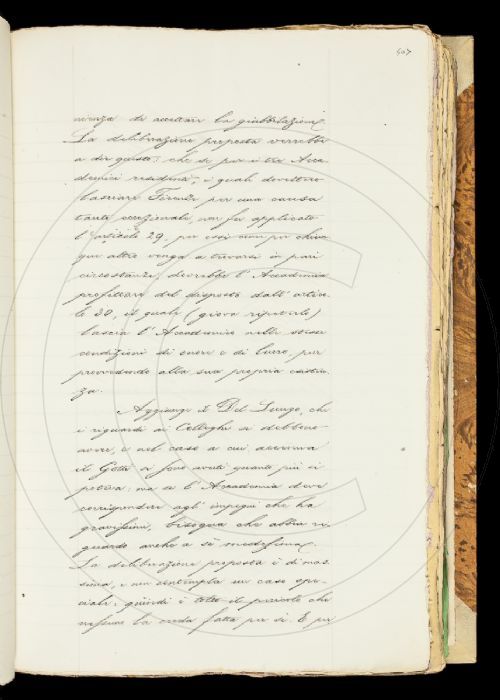 507
nienza di accettare la giubbilazione.
La deliberazione proposta verrebbe
a dir questo: che se per i tre Acca-
demici residenti, i quali dovettero
lasciare Firenze per una causa
tanto eccezionale, non fu applicato
l'articolo 29, per essi come per chiun-
que altro venga a trovarsi in pari
circostanze, dovrebbe l'Accademia
profittare del disposto dall'artico-
lo 30, il quale (giova ripeterlo)
lascia l'Accademico nelle stesse
condizioni di onore e di lucro, pur
provvedendo alla sua propria esisten-
za.
Aggiunge il Del Lungo, che
i riguardi ai Colleghi si debbono
avere, e nel caso a cui accenna
il Gotti si sono avuti quanto più si
poteva: ma se l'Accademia deve
corrispondere agl'impegni che ha
gravissimi, bisogna che abbia ri-
guardo anche a sè medesima.
La deliberazione proposta è di mas-
sima, e non contempla un caso spe-
ciale; quindi è tolto il pericolo che
nessuno la creda fatta per sè. E per